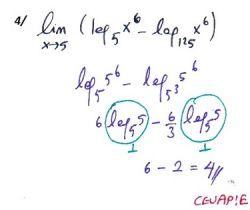 4/ lim x→5 (log₅x⁶ - log₁₂₅x⁶)
log₅5⁶ - log₅³5⁶
6 log₅5 - 6/3 log₅5
1 1
6 - 2 = 4//
CEVAP!E